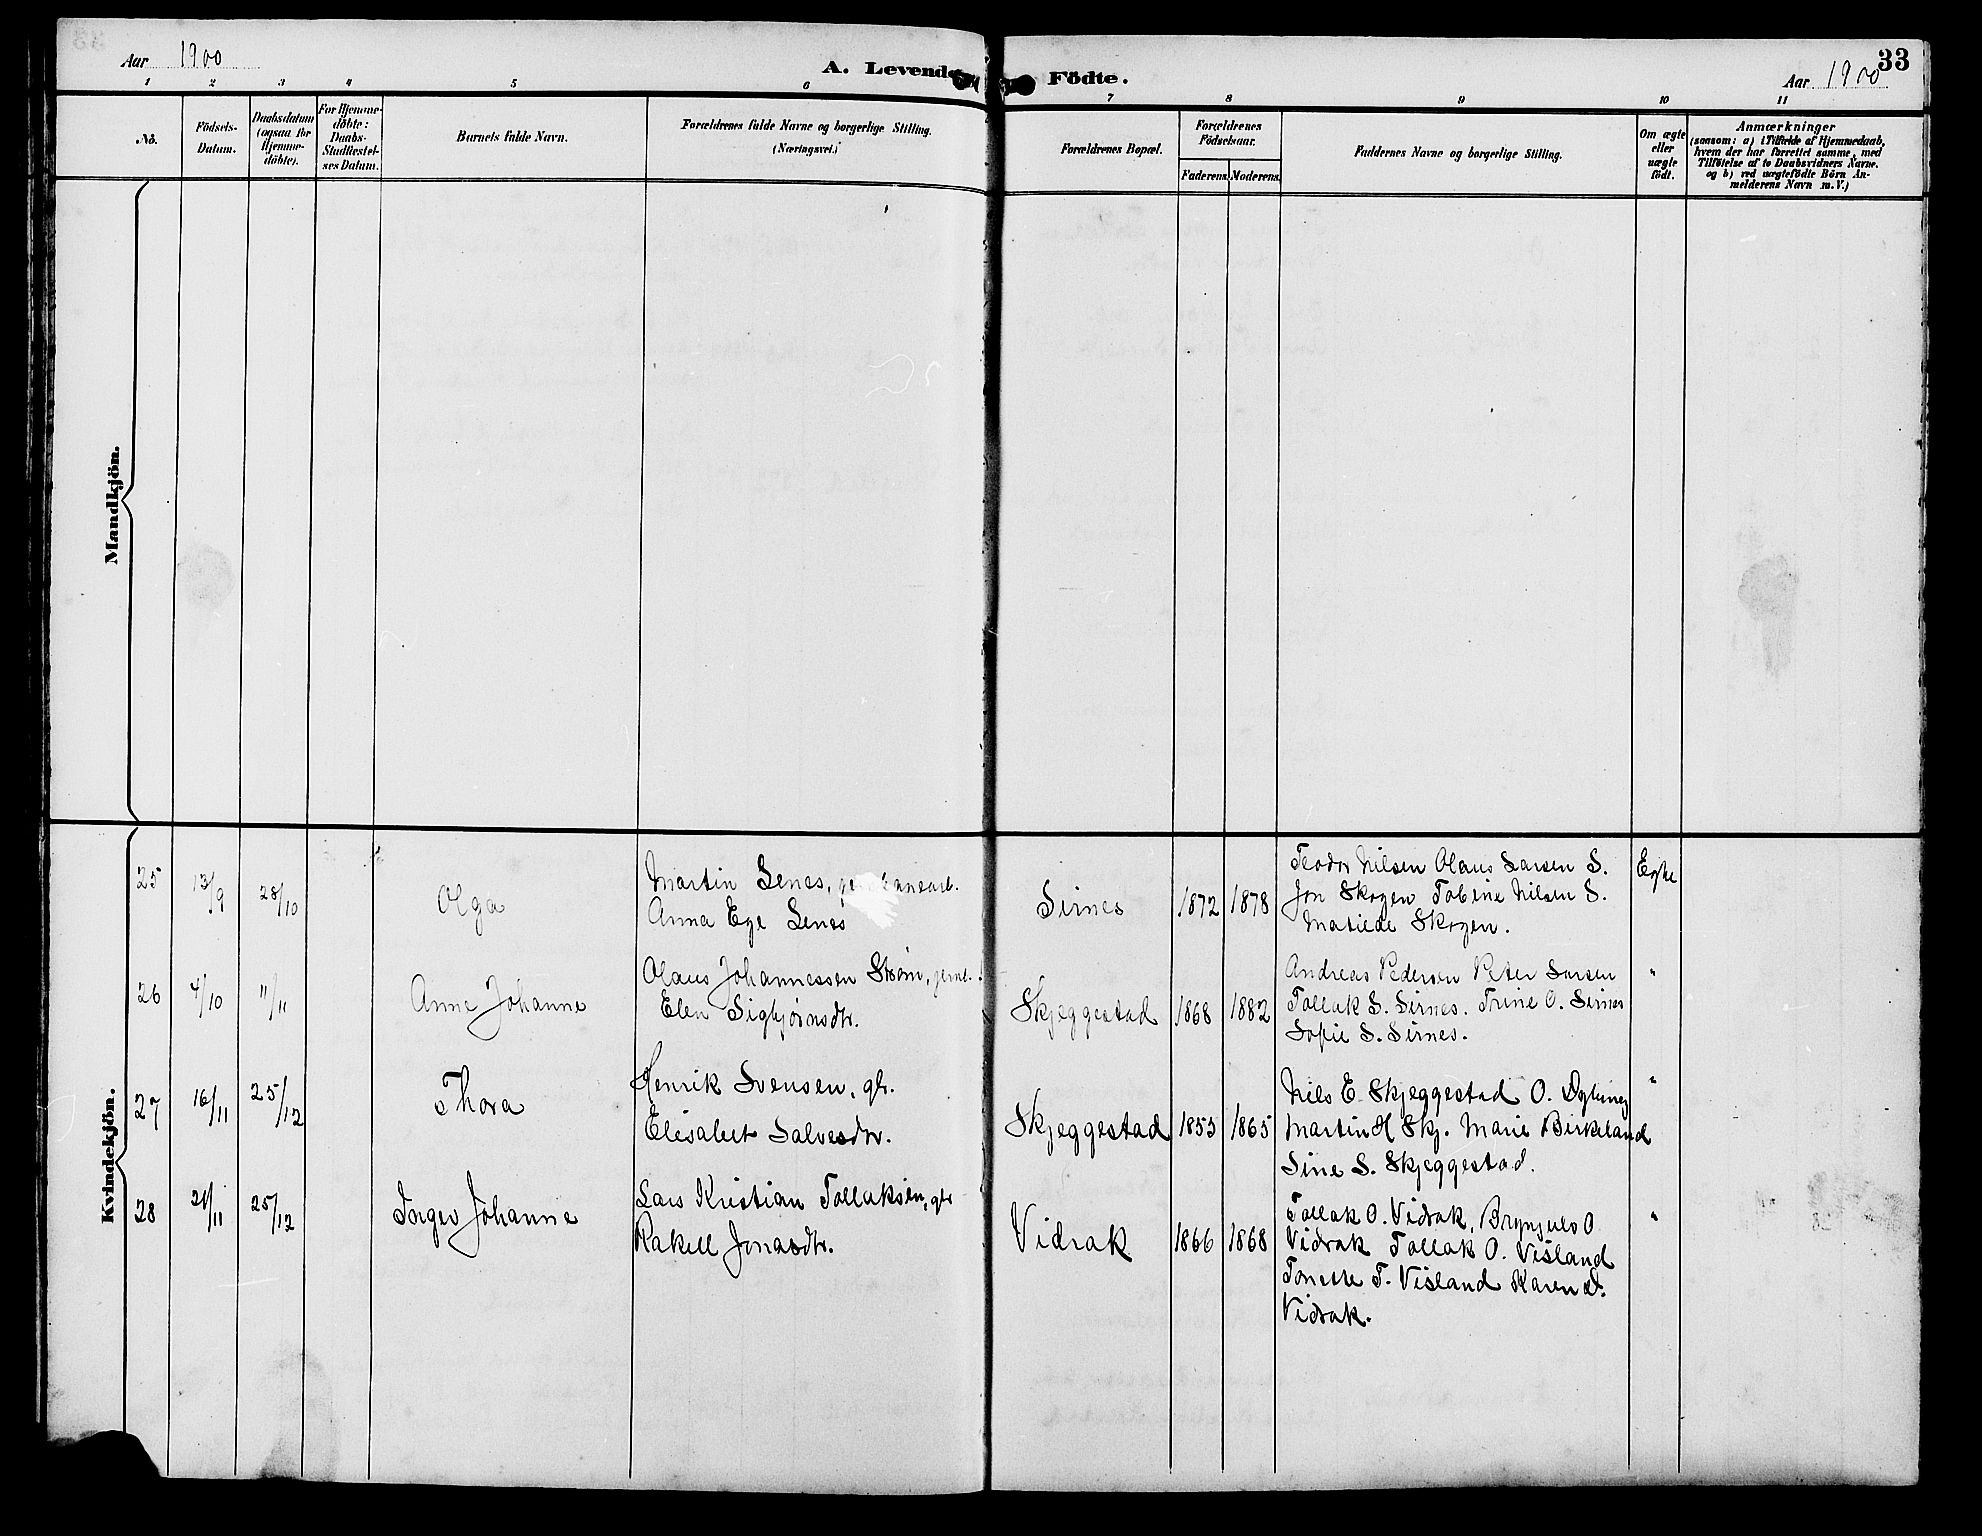 33
Aar 1900
A. Levende Födte.
Aar 1900
1 2 3 4 5 6 7 8 9 10 11
No.
Födsels-
Datum.
Daabsdatum
(ogsaa for
Hjemme-
döbte).
For Hjemme-
döbte:
Daabs-
Stadfæstel-
ses Datum.
Barnets fulde Navn.
Forældrenes fulde Navne og borgerlige Stilling.
(Næringsvei.)
Forældrenes Bopæl.
Forældrenes
Födselsaar.
Faderens. Moderens.
Faddernes Navne og borgerlige Stilling.
Om ægte
eller
uægte
födt.
Anmærkninger
(saasom: a) i Tilfælde af Hjemmedaab,
hvem der har forrettet samme, med
Tilföielse af to Daabsvidners Navne.
og b) ved uægtefödte Börn An-
melderens Navn m. V.)
Mandkjön.
Kvindekjön.
25 13/9 28/10 Olga
Martin Lenes,
Anna Ege Lenes
Sirnes 1872 1878
Teodor Nilsen Olaus Larsen S.
Jon Skogen Tobine Nilsen S.
Matilde Skogen.
Egte
26 4/10 11/11 Anne Johanne
Olaus Johannessen Strøm,
Elen Sigbjørnsdtr.
Skjeggestad 1868 1882
Andreas Pedersen Peter Larsen
Tollak S. Sirnes. Trine O. Sirnes
Sofie S. Sirnes.
"
27 16/11 25/12 Thora
Henrik Svensen, gbr.
Elisabet Salvesdtr.
Skjeggestad 1855 1865
Nils E. Skjeggestad O.
Martin H Skj. Marie Birkeland
Sine S. Skjeggestad.
"
28 21/11 25/12 Inger Johanne
Lars Kristian Tollaksen, gbr
Rakell Jonasdtr.
Vidrak 1866 1868
Tollak O. Vidrak, Brynjuls O
Vidrak Tollak O. Visland
Tonette T. Visland Karen
Vidrak.
"